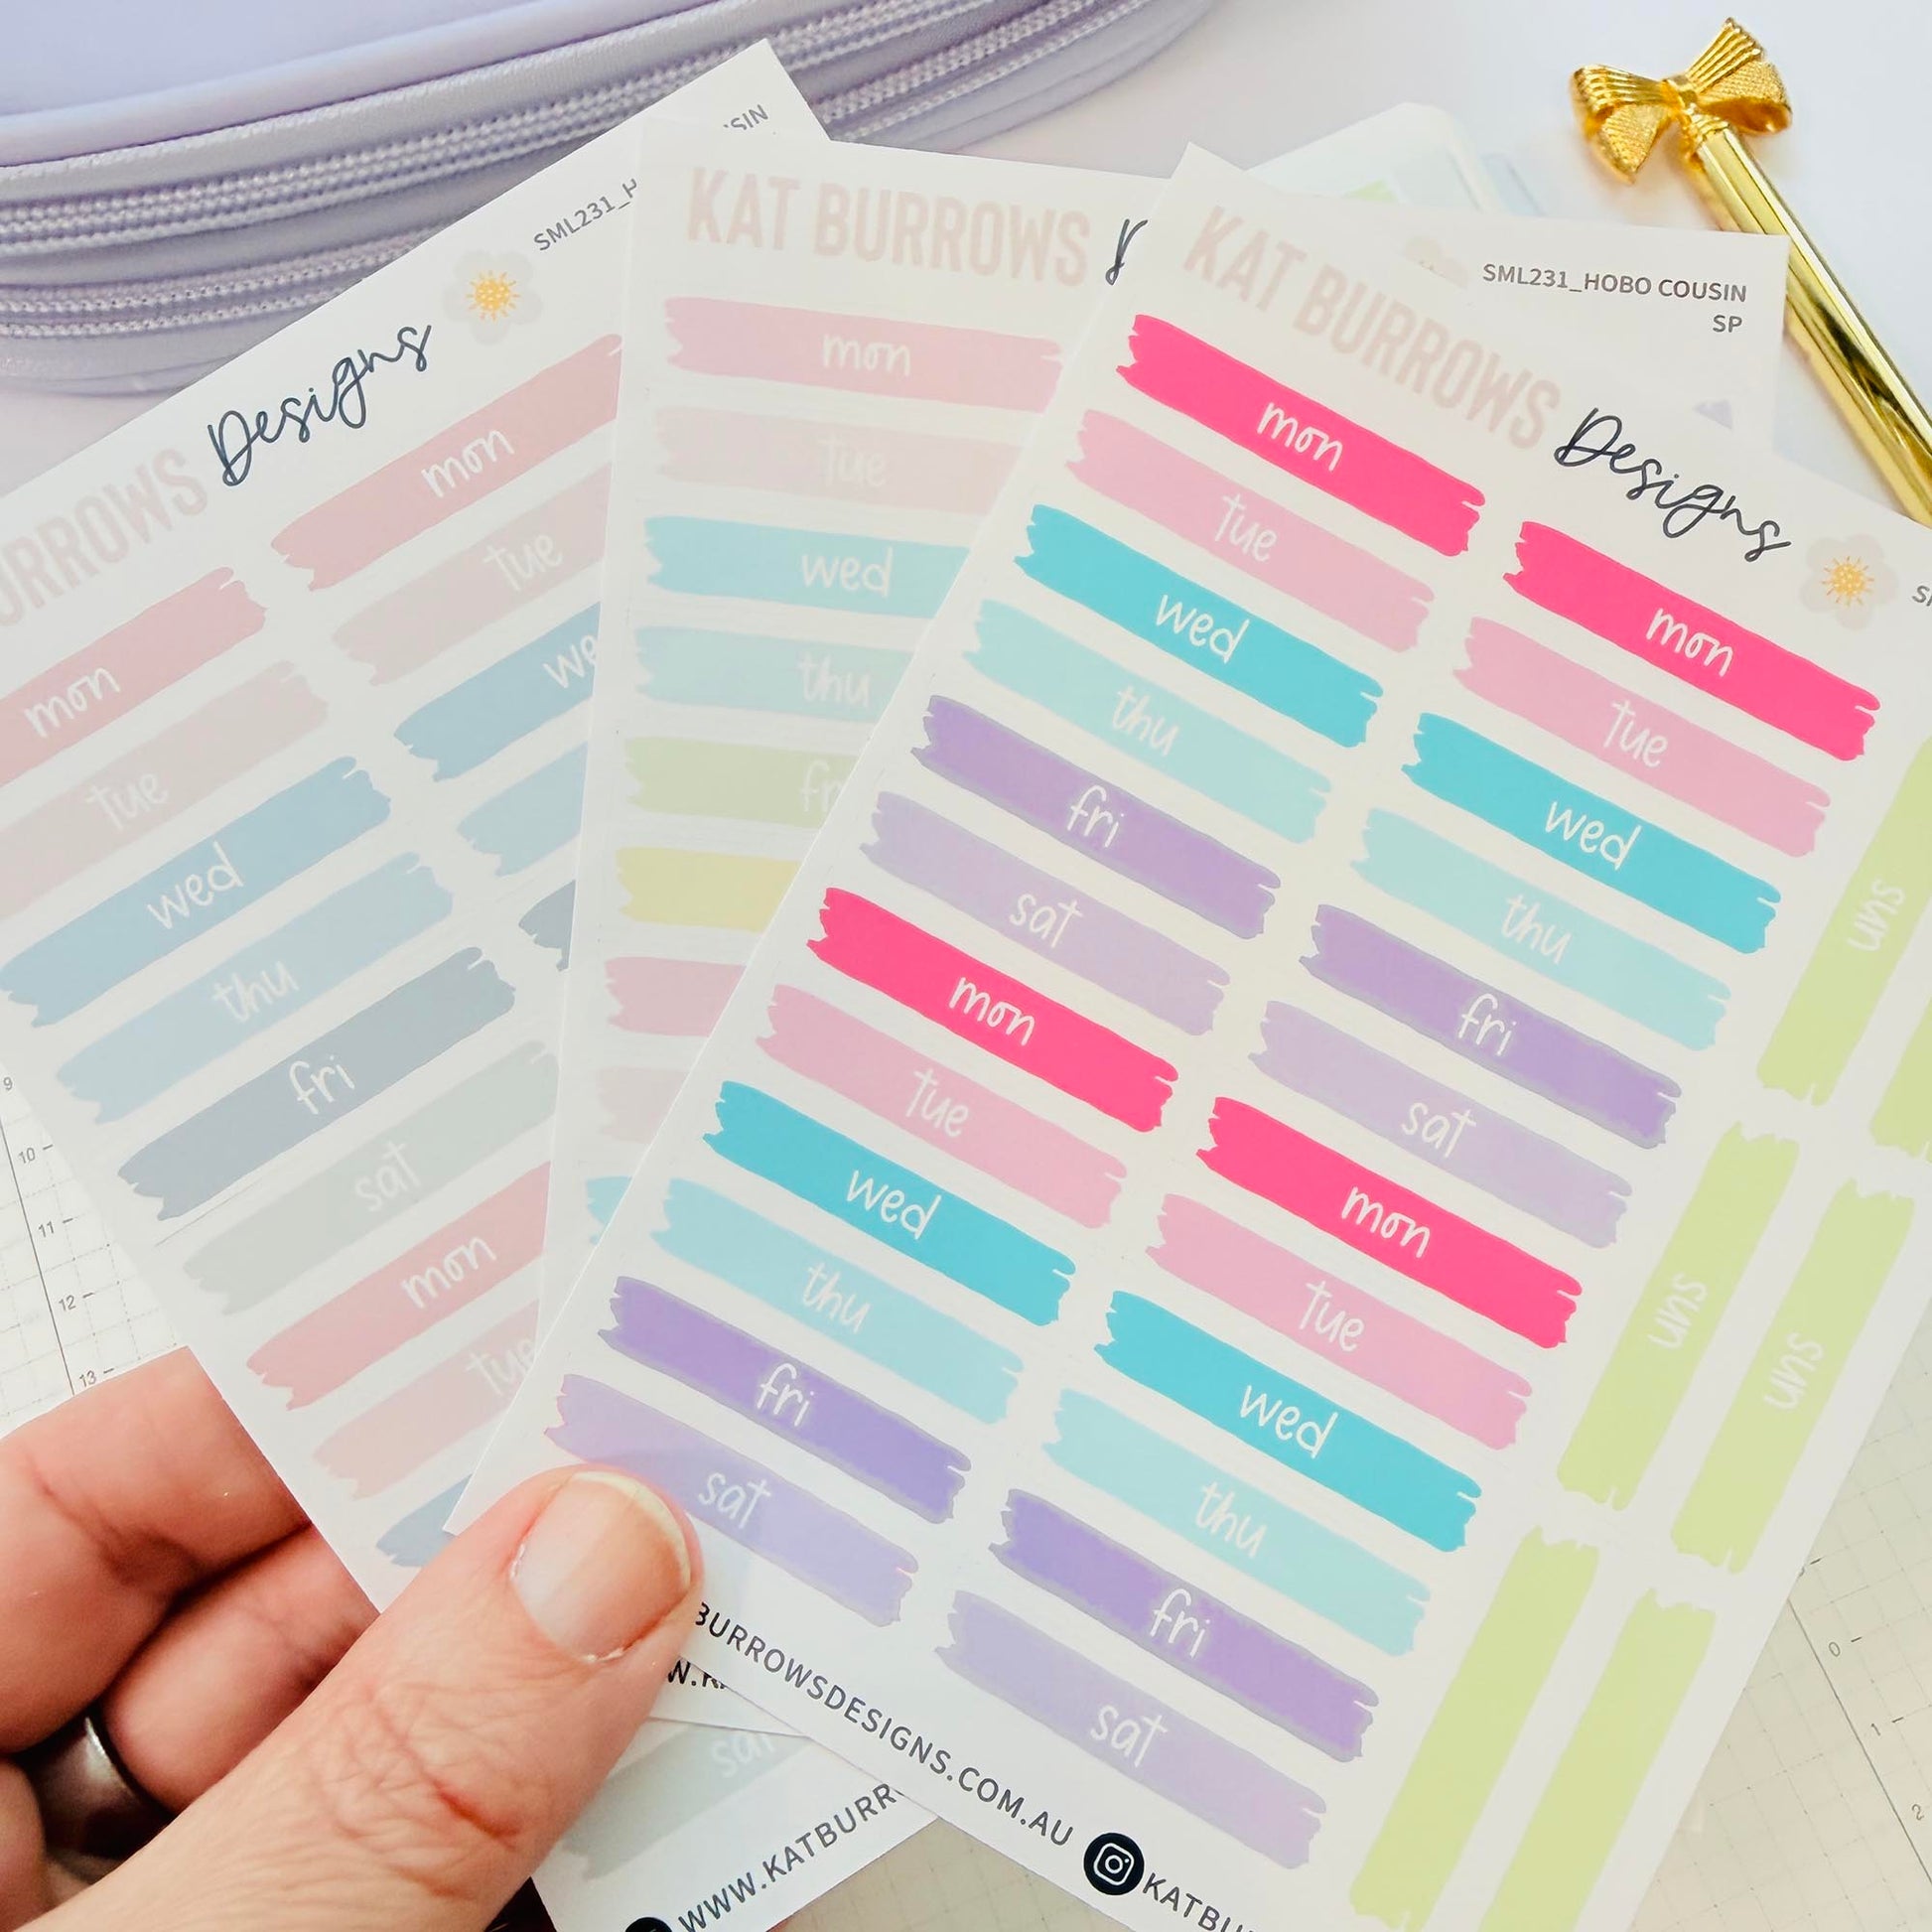 SML231_H
SIN
BURROWS Designs
mon
mon
tue
tue
wed
we
thu
fri
sat
mon
tue
sat
WWW.KATBURR
KAT BURROWS
mon
tue
wed
thu
fr
W.K
SML231_HOBO COUSIN
SP
KAT BURROWS Designs
mon
mon
tue
tue
wed
wed
thu
thu
fri
fri
sat
sat
mon
mon
tue
tue
wed
wed
thu
thu
fri
fri
sat
sat
sun
sun
sun
BURROWSDESIGNS.COM.AU
KATBU
9
10
11
12
13
0
1
2